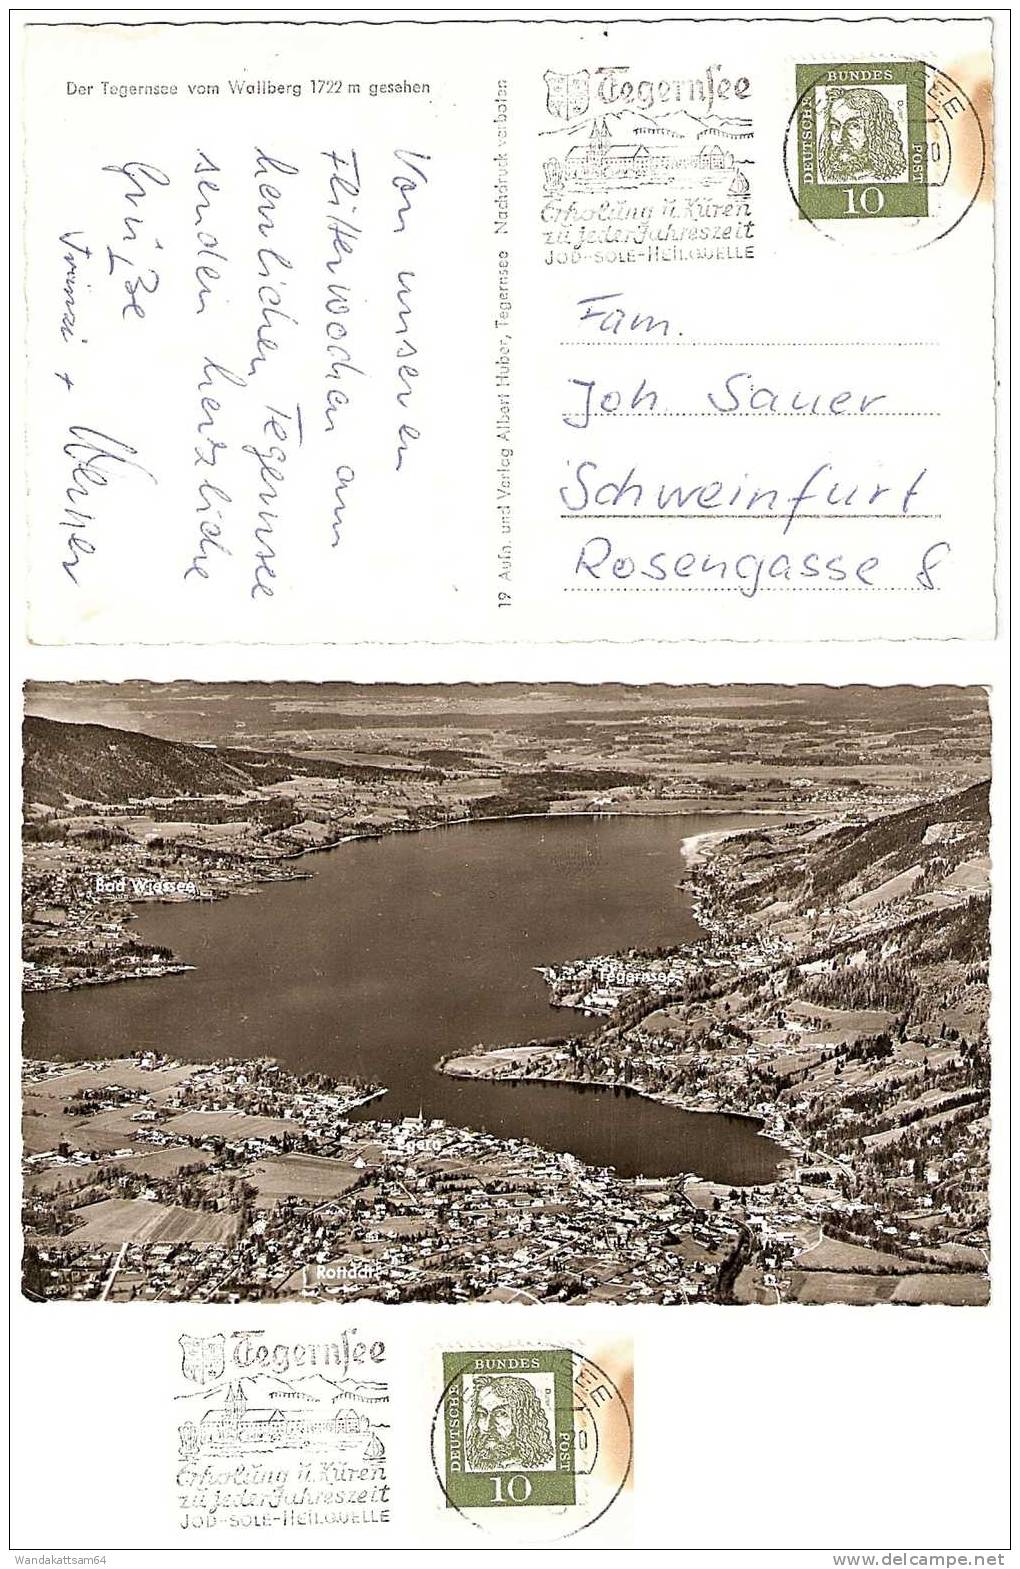 Der Tegernsee vom Wallberg 1722 m gesehen
Von unseren
Flitterwochen am
herrlichen Tegernsee
senden herzliche
Grüße
+ Werner
19 Aufn. und Verlag Albert Huber, Tegernsee Nachdruck verboten
Tegernsee
Erholung u. Kuren
zu jeder Jahreszeit
JOD-SOLE-HEILQUELLE
SEE
20
DEUTSCHE
BUNDES
POST
Dürer
10
Fam.
Joh. Sauer
Schweinfurt
Rosengasse 8
Bad Wiessee
Tegernsee
Egern
Rottach
Tegernsee
Erholung u. Kuren
zu jeder Jahreszeit
JOD-SOLE-HEILQUELLE
SEE
20
DEUTSCHE
BUNDES
POST
Dürer
10
Wandakattsam64
www.delcampe.net